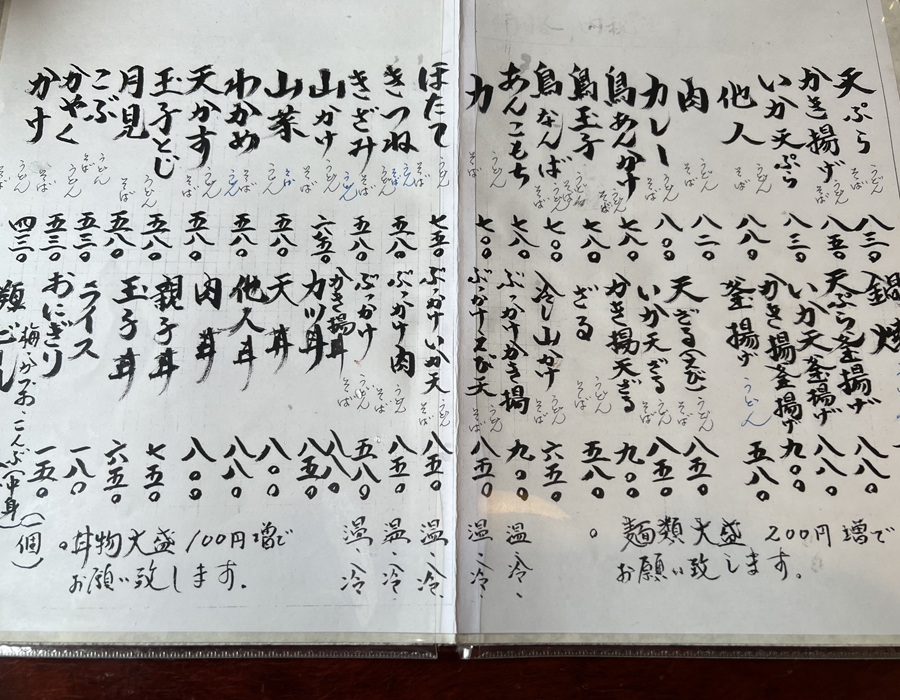 天ぷら うどん そば 八三〇
かき揚げ うどん そば 八五〇
いか天ぷら 八三〇
他人 うどん そば 八八〇
肉 うどん そば 八二〇
カレー うどん そば 八〇〇
鳥あんかけ うどん そば 七八〇
鳥玉子 うどん そば 七八〇
鳥なんば うどん そば 七〇〇
あんこもち うどん そば 七八〇
力 うどん そば 七〇〇
鍋焼
天ぷら釜揚げ 八八〇
いか天釜揚げ 八八〇
かき揚釜揚げ 九〇〇
釜揚げ うどん 五八〇
天ざる(えび) うどん そば 八八〇
いか天ざる うどん そば 八五〇
かき揚天ざる 九〇〇
ざる うどん そば 五八〇
冷し山かけ うどん そば 六五〇
ぶっかけかき揚 九〇〇 温、冷、
ぶっかけえび天 うどん そば 八五〇 温、冷、
。麺類大盛 200円増で
お願い致します。
ほたて うどん そば 七五〇
きつね うどん そば 五八〇
きざみ うどん そば 五八〇
山かけ うどん そば 六五〇
山菜 うどん そば 五八〇
わかめ うどん そば 五八〇
天かす うどん そば 五八〇
玉子とじ うどん 五八〇
月見 うどん そば 五八〇
こぶ うどん そば 五三〇
かやく うどん そば 五三〇
かけ うどん そば 四三〇
ぶっかけいか天 うどん そば 八五〇 温、冷、
ぶっかけ肉 うどん そば 八五〇 温、冷、
ぶっかけ うどん そば 五八〇 温、冷、
かき揚丼 八八〇
カツ丼 八五〇
天丼 八〇〇
他人丼 八八〇
肉丼 八〇〇
親子丼 七五〇
玉子丼 六五〇
ライス 一八〇
おにぎり 一五〇
梅・かつお・こんぶ(中身)(一個)
。丼物大盛 100円増で
お願い致します.